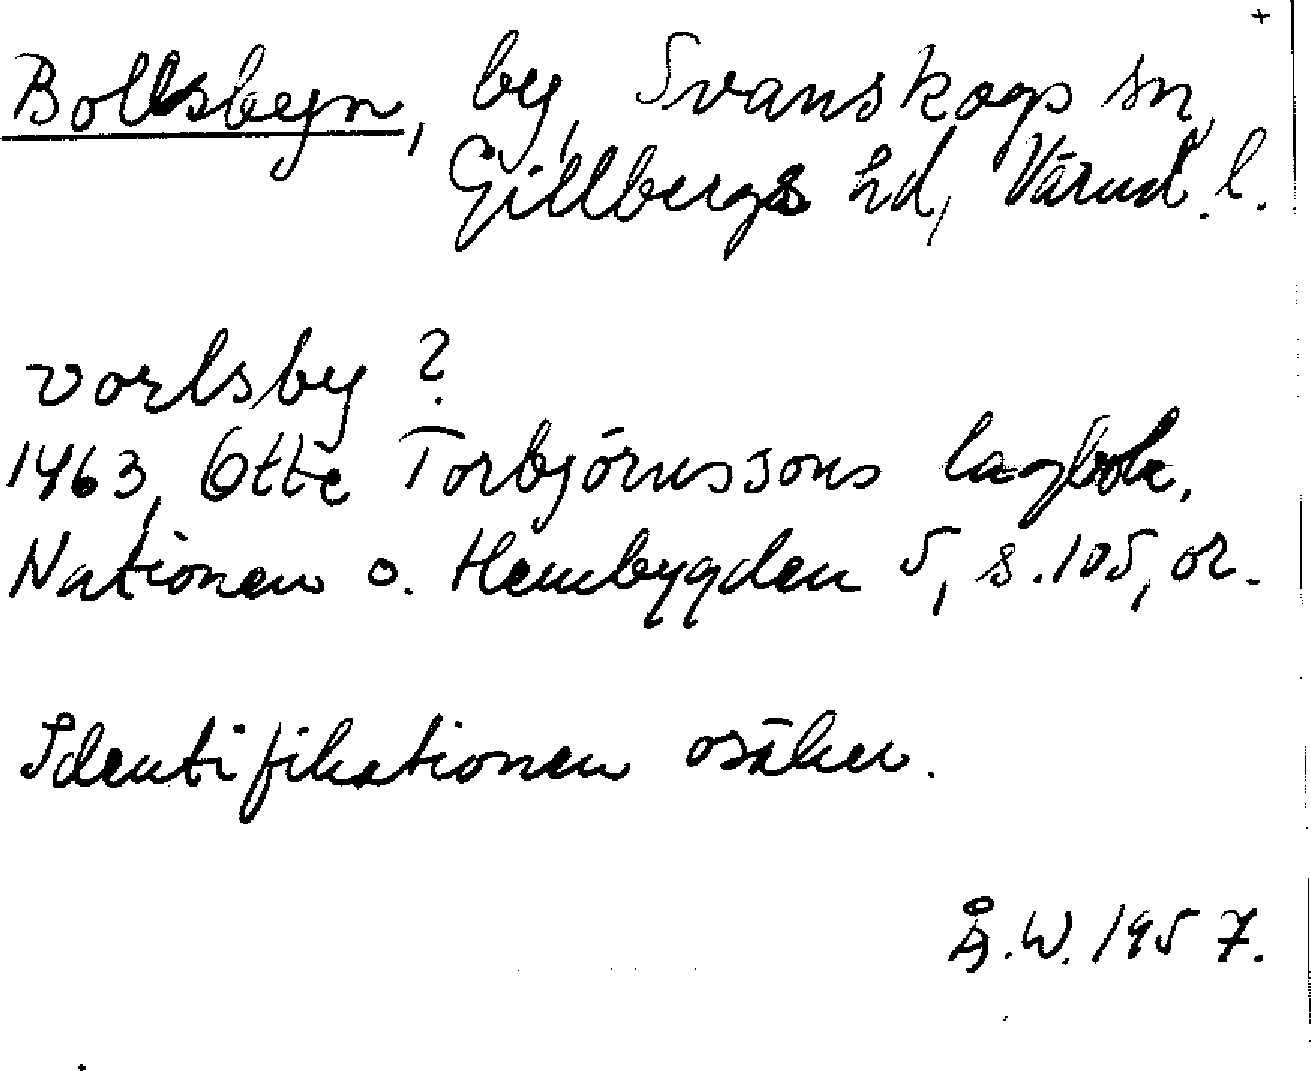 +
Bollsbyn, by, Svanskogs sn,
Gillbergs hd, Värml. l.
vorlsby ?
1463, Otte Torbjörnssons lagbok,
Nationen o. Hembygden 5, s. 105, or.
Identifikationen osäker.
Å.W. 1957.